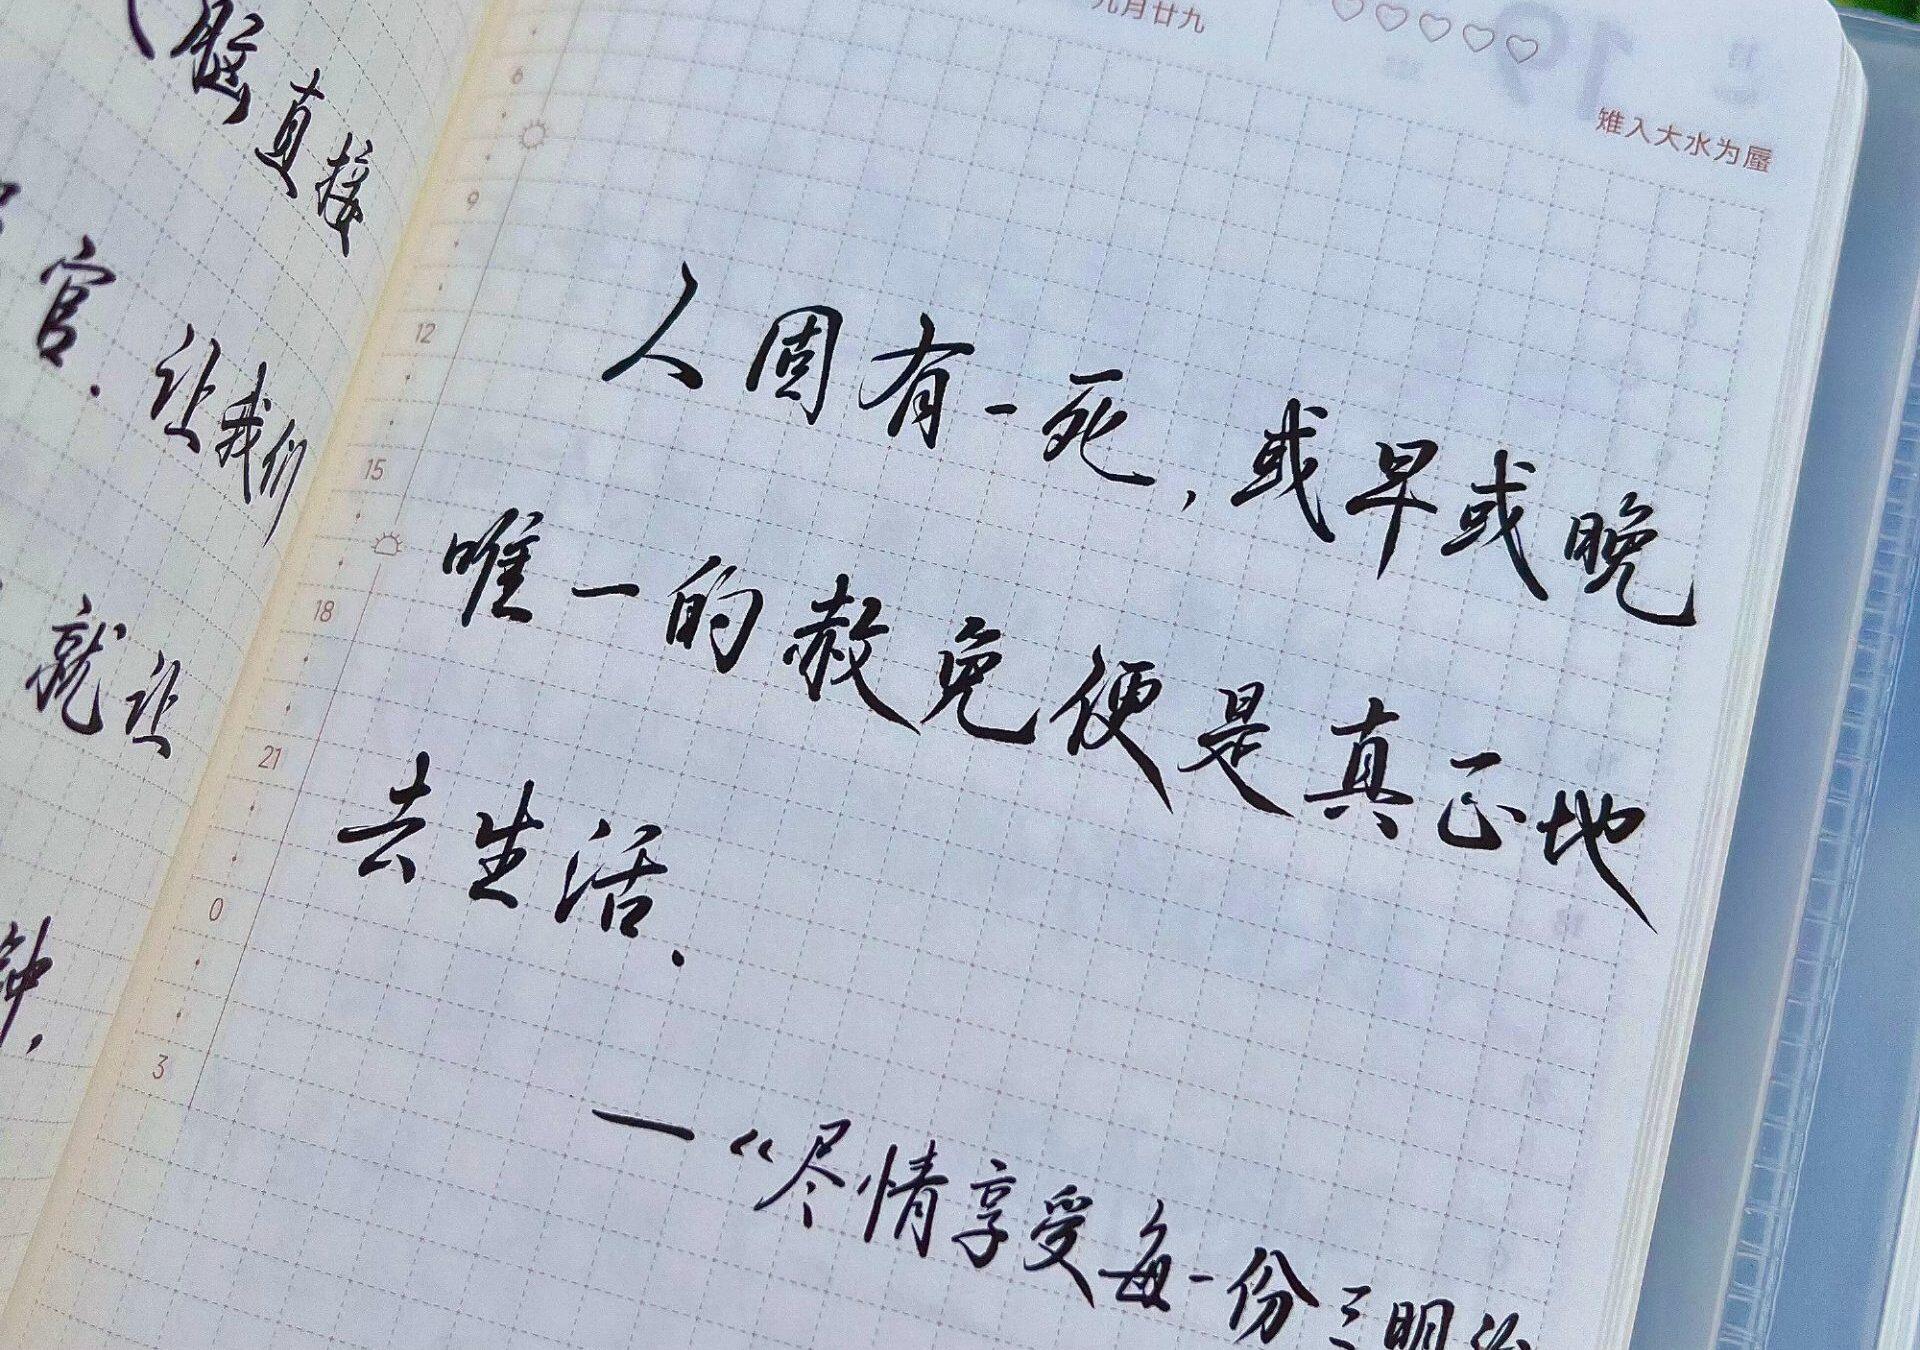 脏直接
官.让我们
就让
钟,
九月廿九
19
雉入大水为蜃
6
9
12
15
18
21
0
3
人固有一死,或早或晚
唯一的赦免便是真正地
去生活.
—《尽情享受每一份三明治